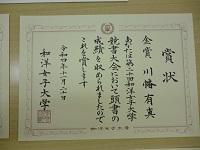 賞状
金賞 川幡有真
あなたは第二十四回和洋女子大学
競書大会において頭書の
成績を収められましたので
これを賞します
令和四年十一月二十日
和洋女子大学